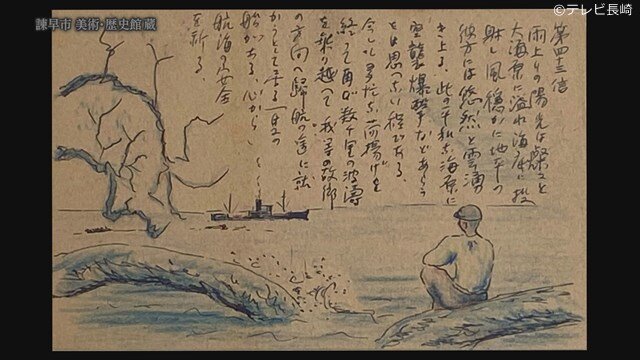 諫早市 美術・歴史館 蔵
©テレビ長崎
第四十三信
雨上りの陽光は燦々と
大海原に溢れ海底に投
射し風穏かに地平の
彼方には悠然と雲湧
き上る、此の平和な海原に
空襲爆撃などあらう
とは思へない程である、
今しも多忙な荷揚げを
終って再び数千里の波濤
を乗り越へて我等の故郷
の方向へ帰航の途に就
かうとして居る一隻の
船がある、心から
航海の安全
を祈る、